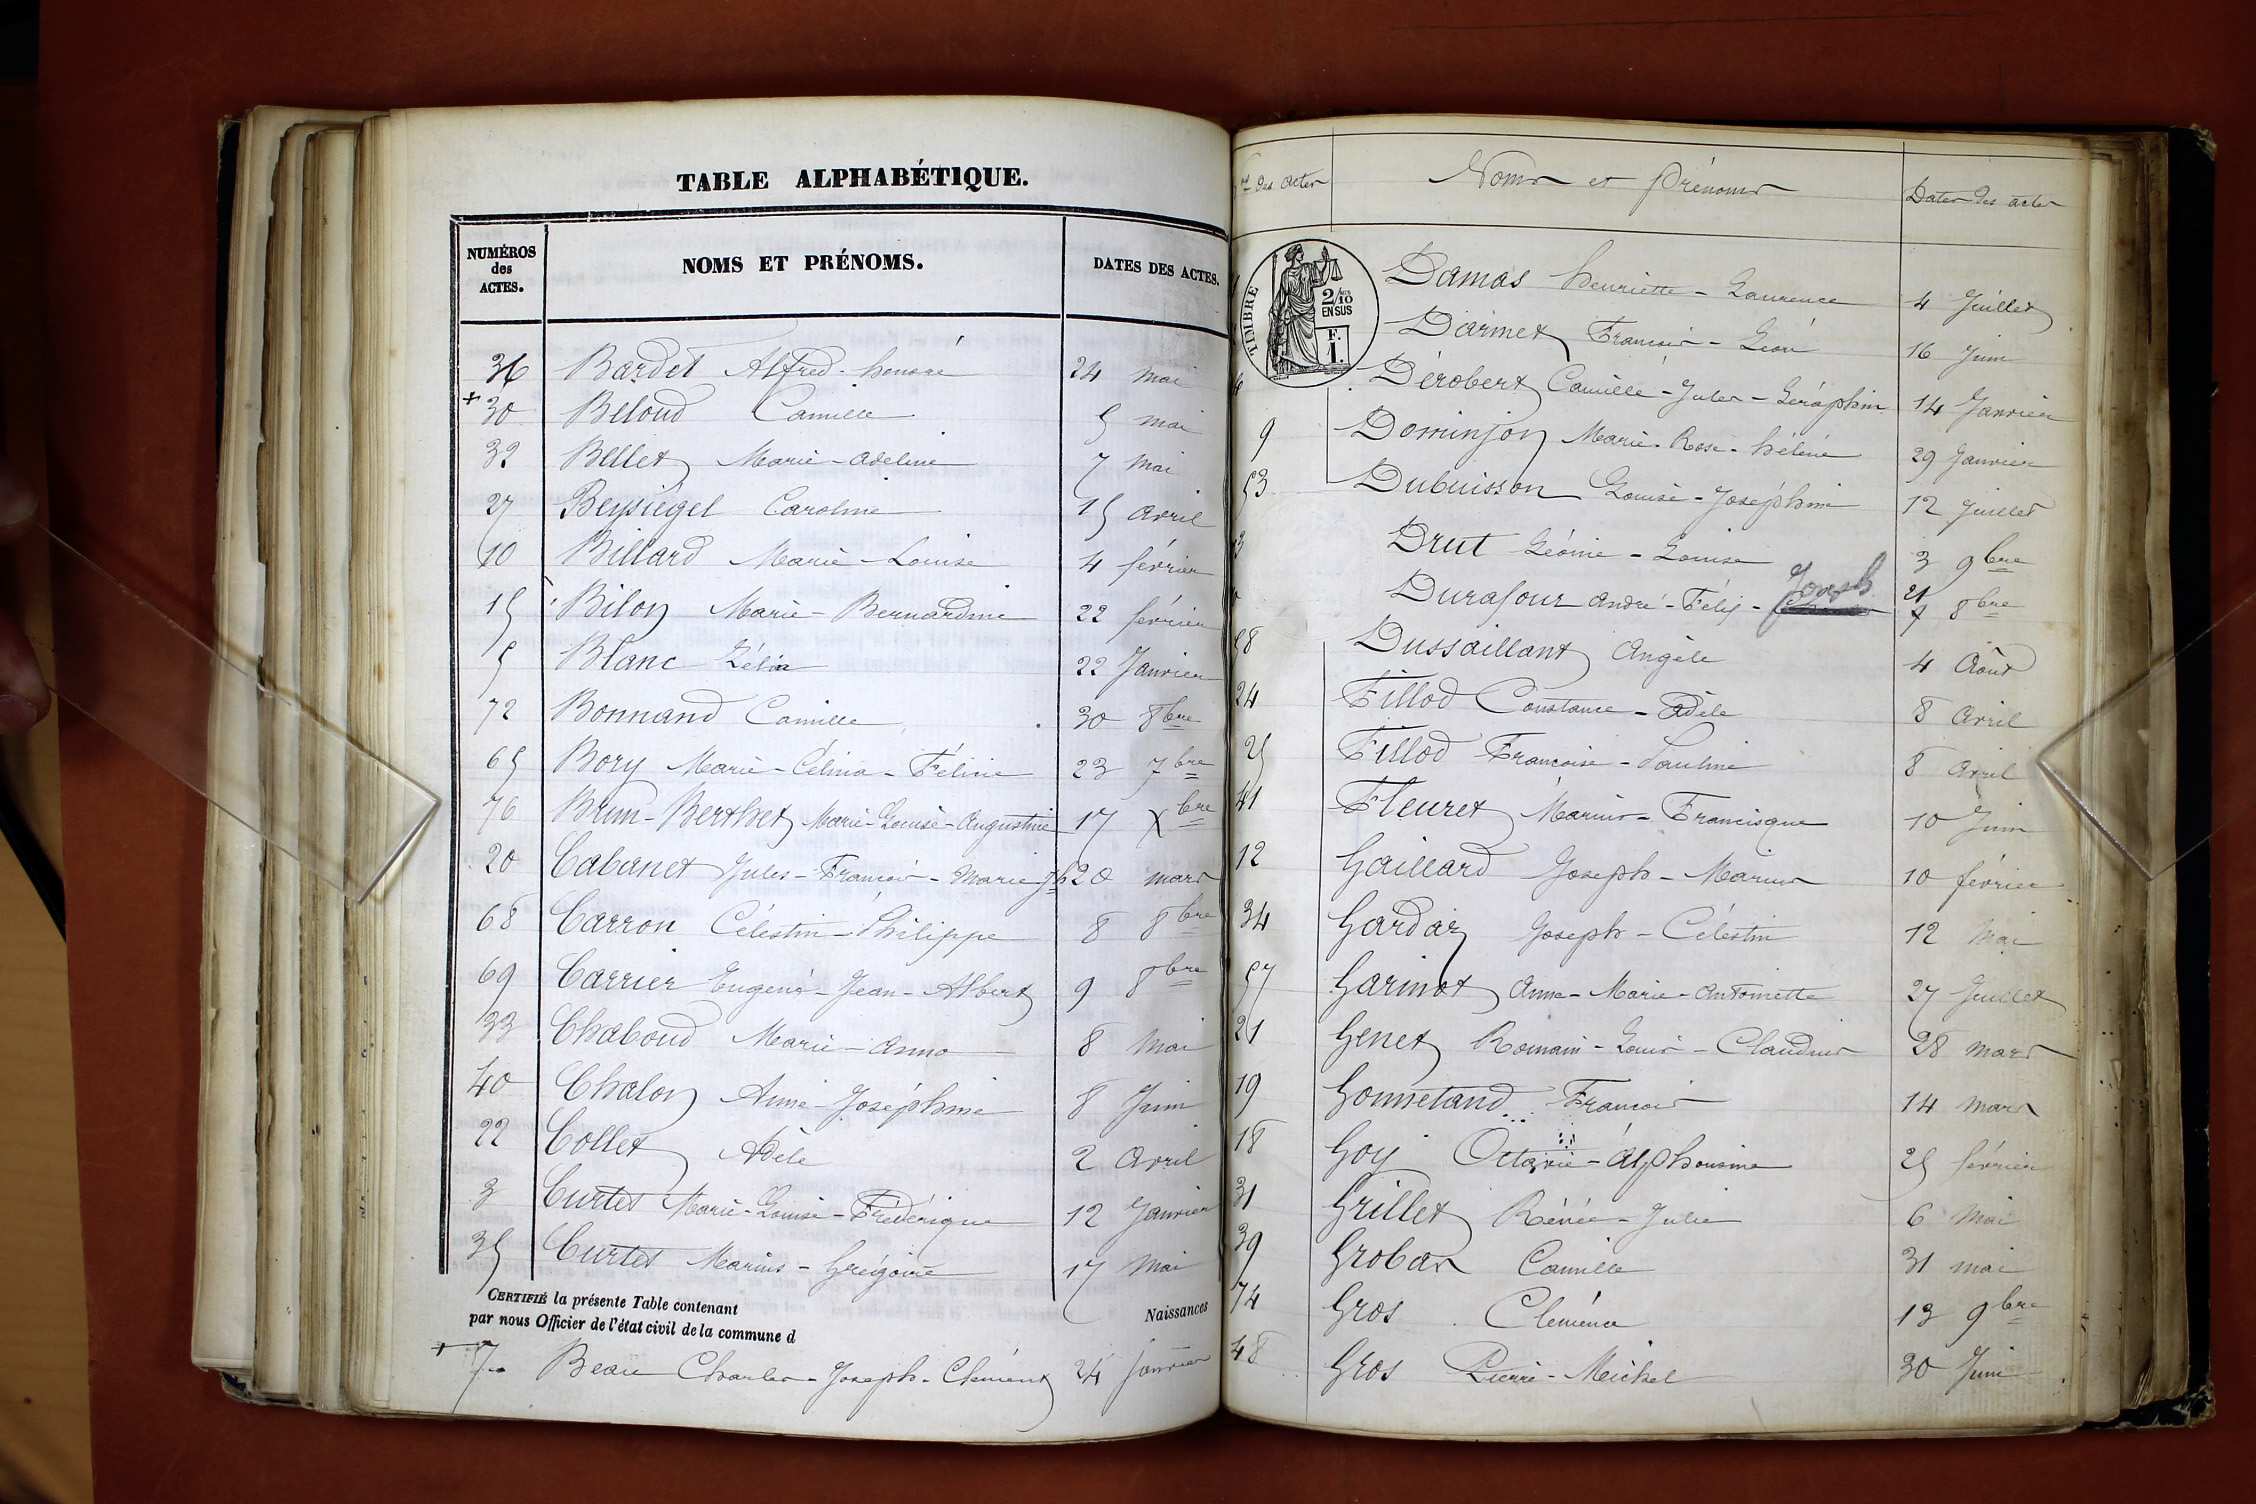 TABLE ALPHABÉTIQUE.
NUMÉROS des ACTES. NOMS ET PRÉNOMS. DATES DES ACTES.
36 Bardet Alfred - honoré 24 mai
+ 30 Beloud Camille 5 mai
32 Bellet Marie - Adeline 7 mai
27 Beysiegel Caroline 15 avril
10 Billard Marie - Louise 4 février
15 Bilon Marie - Bernardine 22 février
5 Blanc Lélia 22 Janvier
72 Bonnand Camille 30 8bre
65 Bory Marie - Célina - Féline 23 7bre
76 Brun - Berthet Marie - Louise - Augustine 17 Xbre
20 Cabanet Jules - François - Marie Jh 20 mars
68 Carron Célestin - Philippe 8 8bre
69 Carrier Eugène - Jean - Albert 9 8bre
33 Chaboud Marie - Anna 8 mai
40 Chalon Aimé - Joséphine 8 Juin
22 Collet Adèle 2 Avril
3 Curtet Marie - Louise - Frédérique 12 Janvier
35 Curtet Marius - Grégoire 17 Mai
CERTIFIÉ la présente Table contenant Naissances
par nous Officier de l'état civil de la commune d
+ 7 Beau Charles - Joseph - Clément 24 Janvier
Nos des actes Noms et Prénoms Dates des actes
TIMBRE 2/10 EN SUS F. 1.
Damas henriette - Laurence 4 Juillet
Darmet François - Léon 16 Juin
Dérobert Camille - Jules - Séraphin 14 Janvier
9 Dominjon Marie - Rose - hélène 29 Janvier
53 Dubuisson Louise - Joséphine 12 Juillet
Drut Léonie - Louise 3 9bre
Durafour André - Félix - Joseph 21 8bre
58 Dussaillant Angèle 4 Août
24 Fillod Constance - Adèle 8 avril
25 Fillod Françoise - Pauline 8 avril
41 Fleuret Marius - Francisque 10 Juin
12 Gaillard Joseph - Marius 10 février
34 Gardaz Joseph - Célestin 12 Mai
57 Garinot Anne - Marie - Antoinette 27 Juillet
21 Genet Romain - Louis - Claudius 28 mars
19 Gonnetand François 14 mars
18 Goy Octavie - Alphonsine 25 février
31 Grillet Rénée - Julie 6 Mai
39 Grobas Camille 31 mai
74 Gros Clémence 13 9bre
48 Gros Pierre - Michel 30 Juin